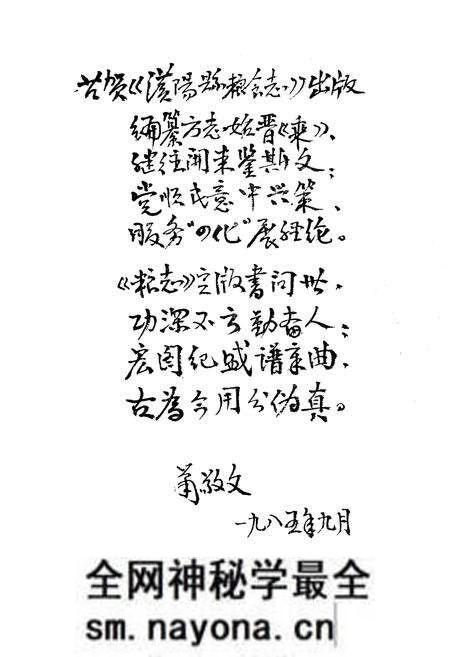 贺《漢陽縣粮食志》出版
编纂方志始晋《乘》、
继往開来鉴斯文；
党顺民意中兴策、
服务“四化”展经纶。
《粮志》定版書问世，
功深不亏勤奋人；
宏图纪盛谱新曲，
古為今用分伪真。
萧敬文
一九八五年九月
全网神秘学最全
sm.nayona.cn